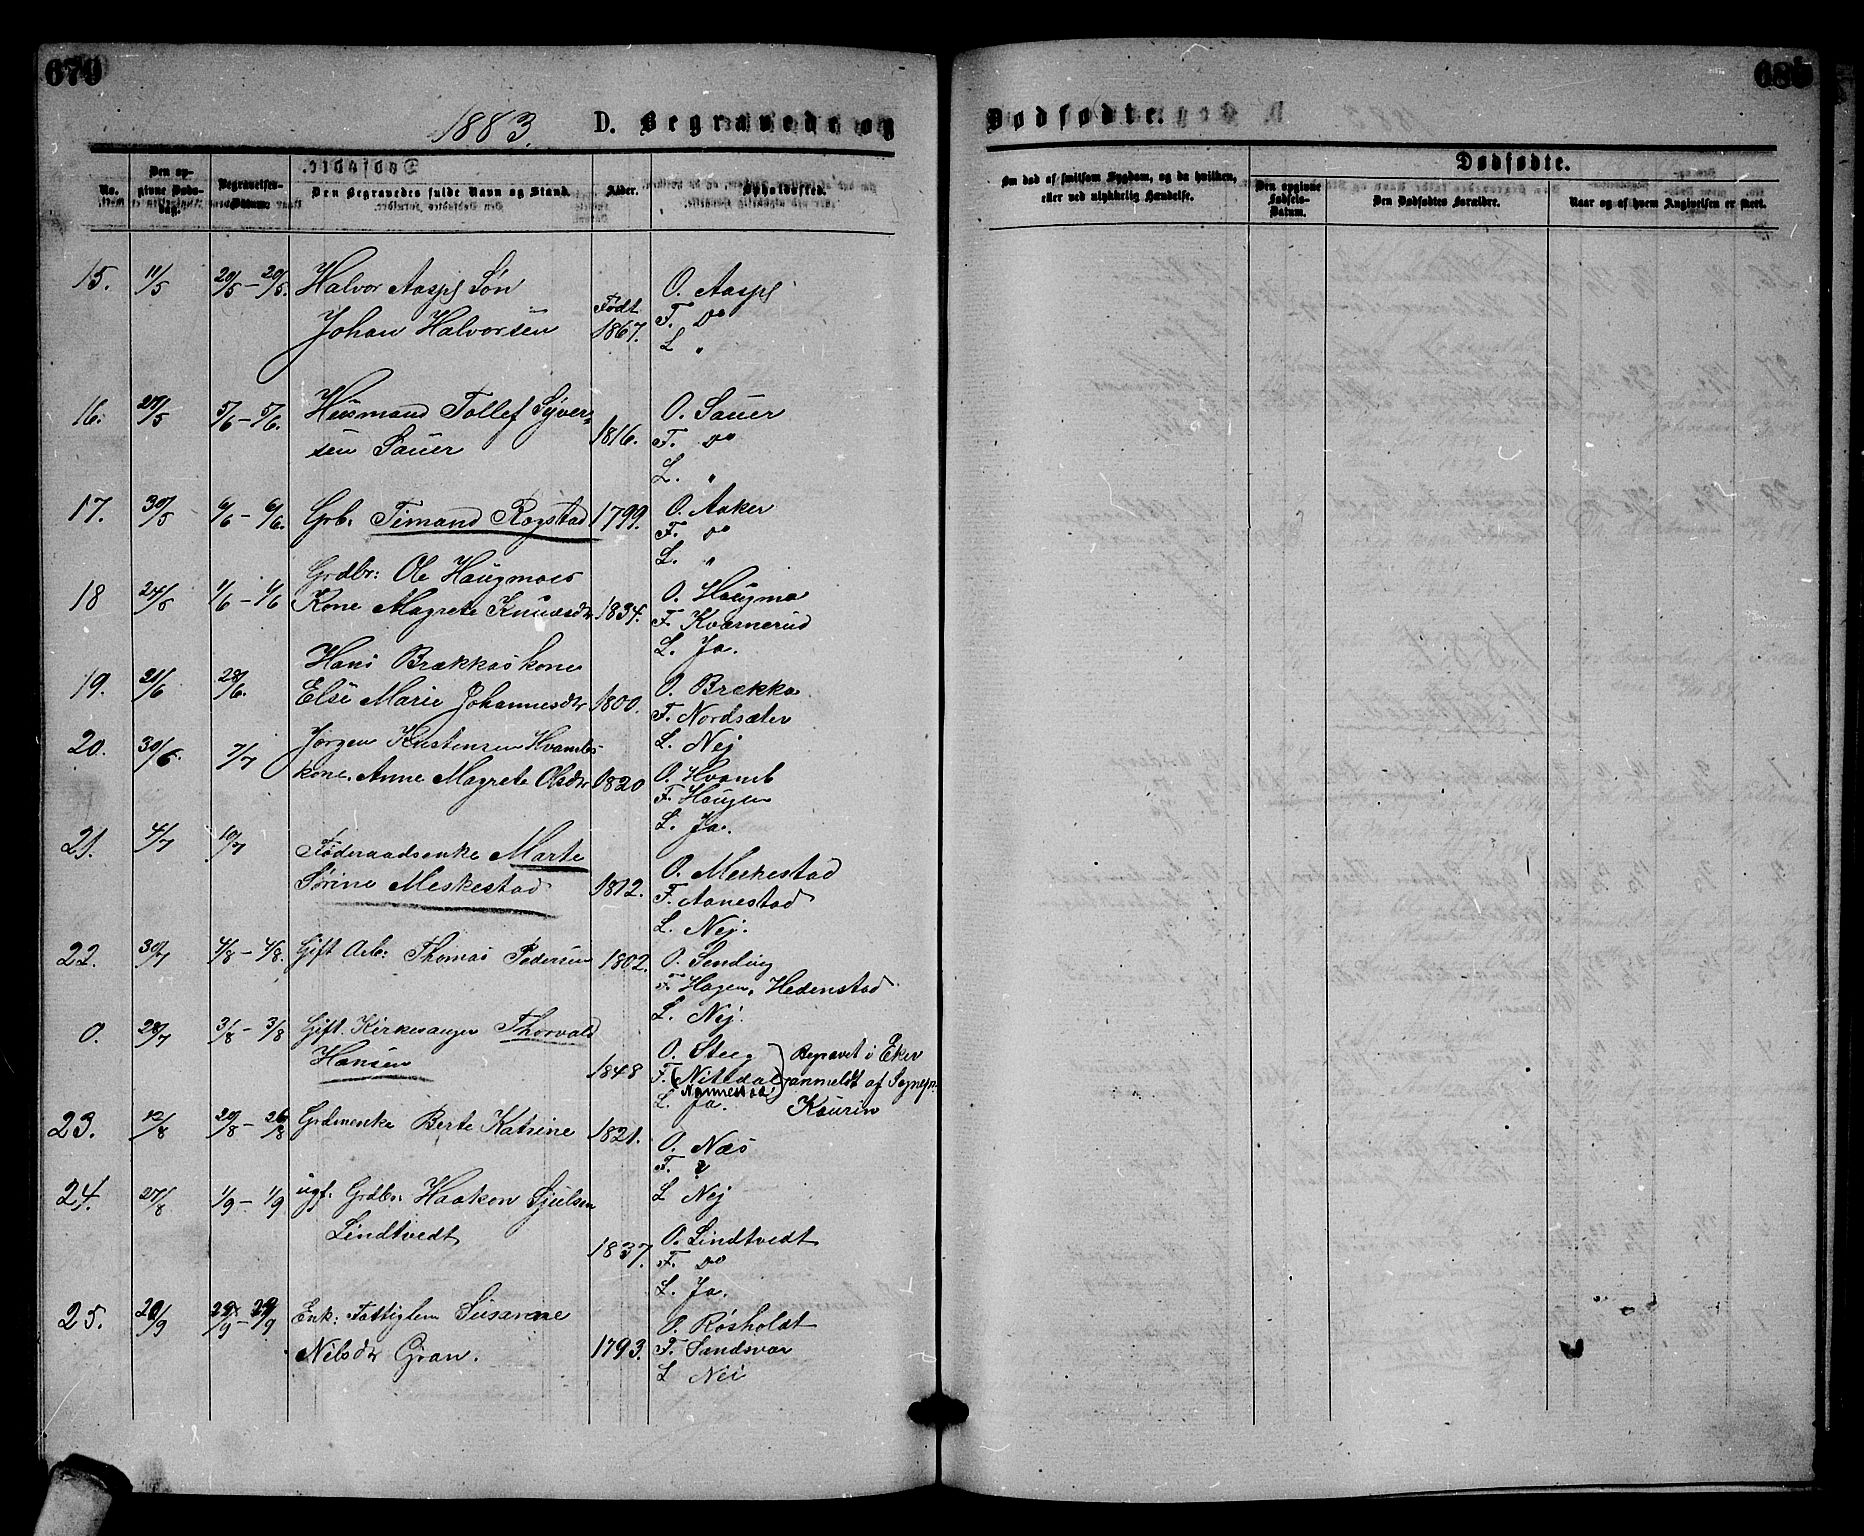 679
685
1883. D. Begravede og Dødfødte.
No.
Den opgivne Dødsdag.
Begravelses-Datum.
Den Begravedes fulde Navn og Stand.
Alder.
Opholdssted.
Om død af smitsom Sygdom, og da hvilken, eller ved ulykkelig Hændelse.
Dødfødte.
Den opgivne Fødsels-Datum.
Den Dødfødtes Forældre.
Naar og af hvem Angivelsen er skeet.
15. 11/5 20/5 – 20/5. Halvor Aaspe Søn
Johan Halvorsen Født 1867.
O. Aaspe
F. Do
L "
16. 27/5 5/6 – 5/6. Husmand Tollef Syver-
sen Sauer 1816.
O. Sauer
F. Do
L. "
17. 30/5 6/6 – 6/6. Grb. Timand Rogstad 1799.
O. Aaker
F. Do
L. "
18 24/5 1/6 – 1/6 Grdbr: Ole Haugmoes
Kone Magrete Knudsdr 1834.
O. Haugmo
F. Kværnerud
L. Ja.
19. 21/6 28/6. Hans Brækkas kone
Else Marie Johannesdr 1800.
O. Brekka
F. Nordsæter
L. Nej
20. 30/6. 7/7 Jørgen Kristensen Hvambs
kone. Anne Magrete Olsdr 1820
O. Hvamb
F. Haugen
L. Ja.
21. 4/7 10/7 Føderaadsenke Marte
Sørine Meskestad 1812.
O. Meskestad
F. Aanestad
L. Nej.
22. 30/7 4/8 – 4/8. Gift Arb: Thomas Pedersen 1802.
O. Sending
F. Hagen, Hedenstad
L. Nej.
0. 28/7 3/8 – 3/8 Gift. Kirkesanger Thorvald
Hansen 1848
O. Steg
F. (Nittdal Nannestad)
L. Ja.
Begravet i Eker
anmeldt af Sognepr.
Kaurin
23. 12/8 20/8 – 26/8 Grdmenke Berte Katrine 1821.
O. Næs
F. ?
L Nej
24. 27/8 1/9 – 1/9 ugf. Grdbr: Haakon Gjulsen
Lindtvedt 1837.
O. Lindtvedt
F. Do
L. Ja.
25. 20/9 29/9 – 29/9 Enk: Fattiglem Susanne
Nilsdr Gran. 1793.
O. Røsholdt
F. Sandsvær
L Nei